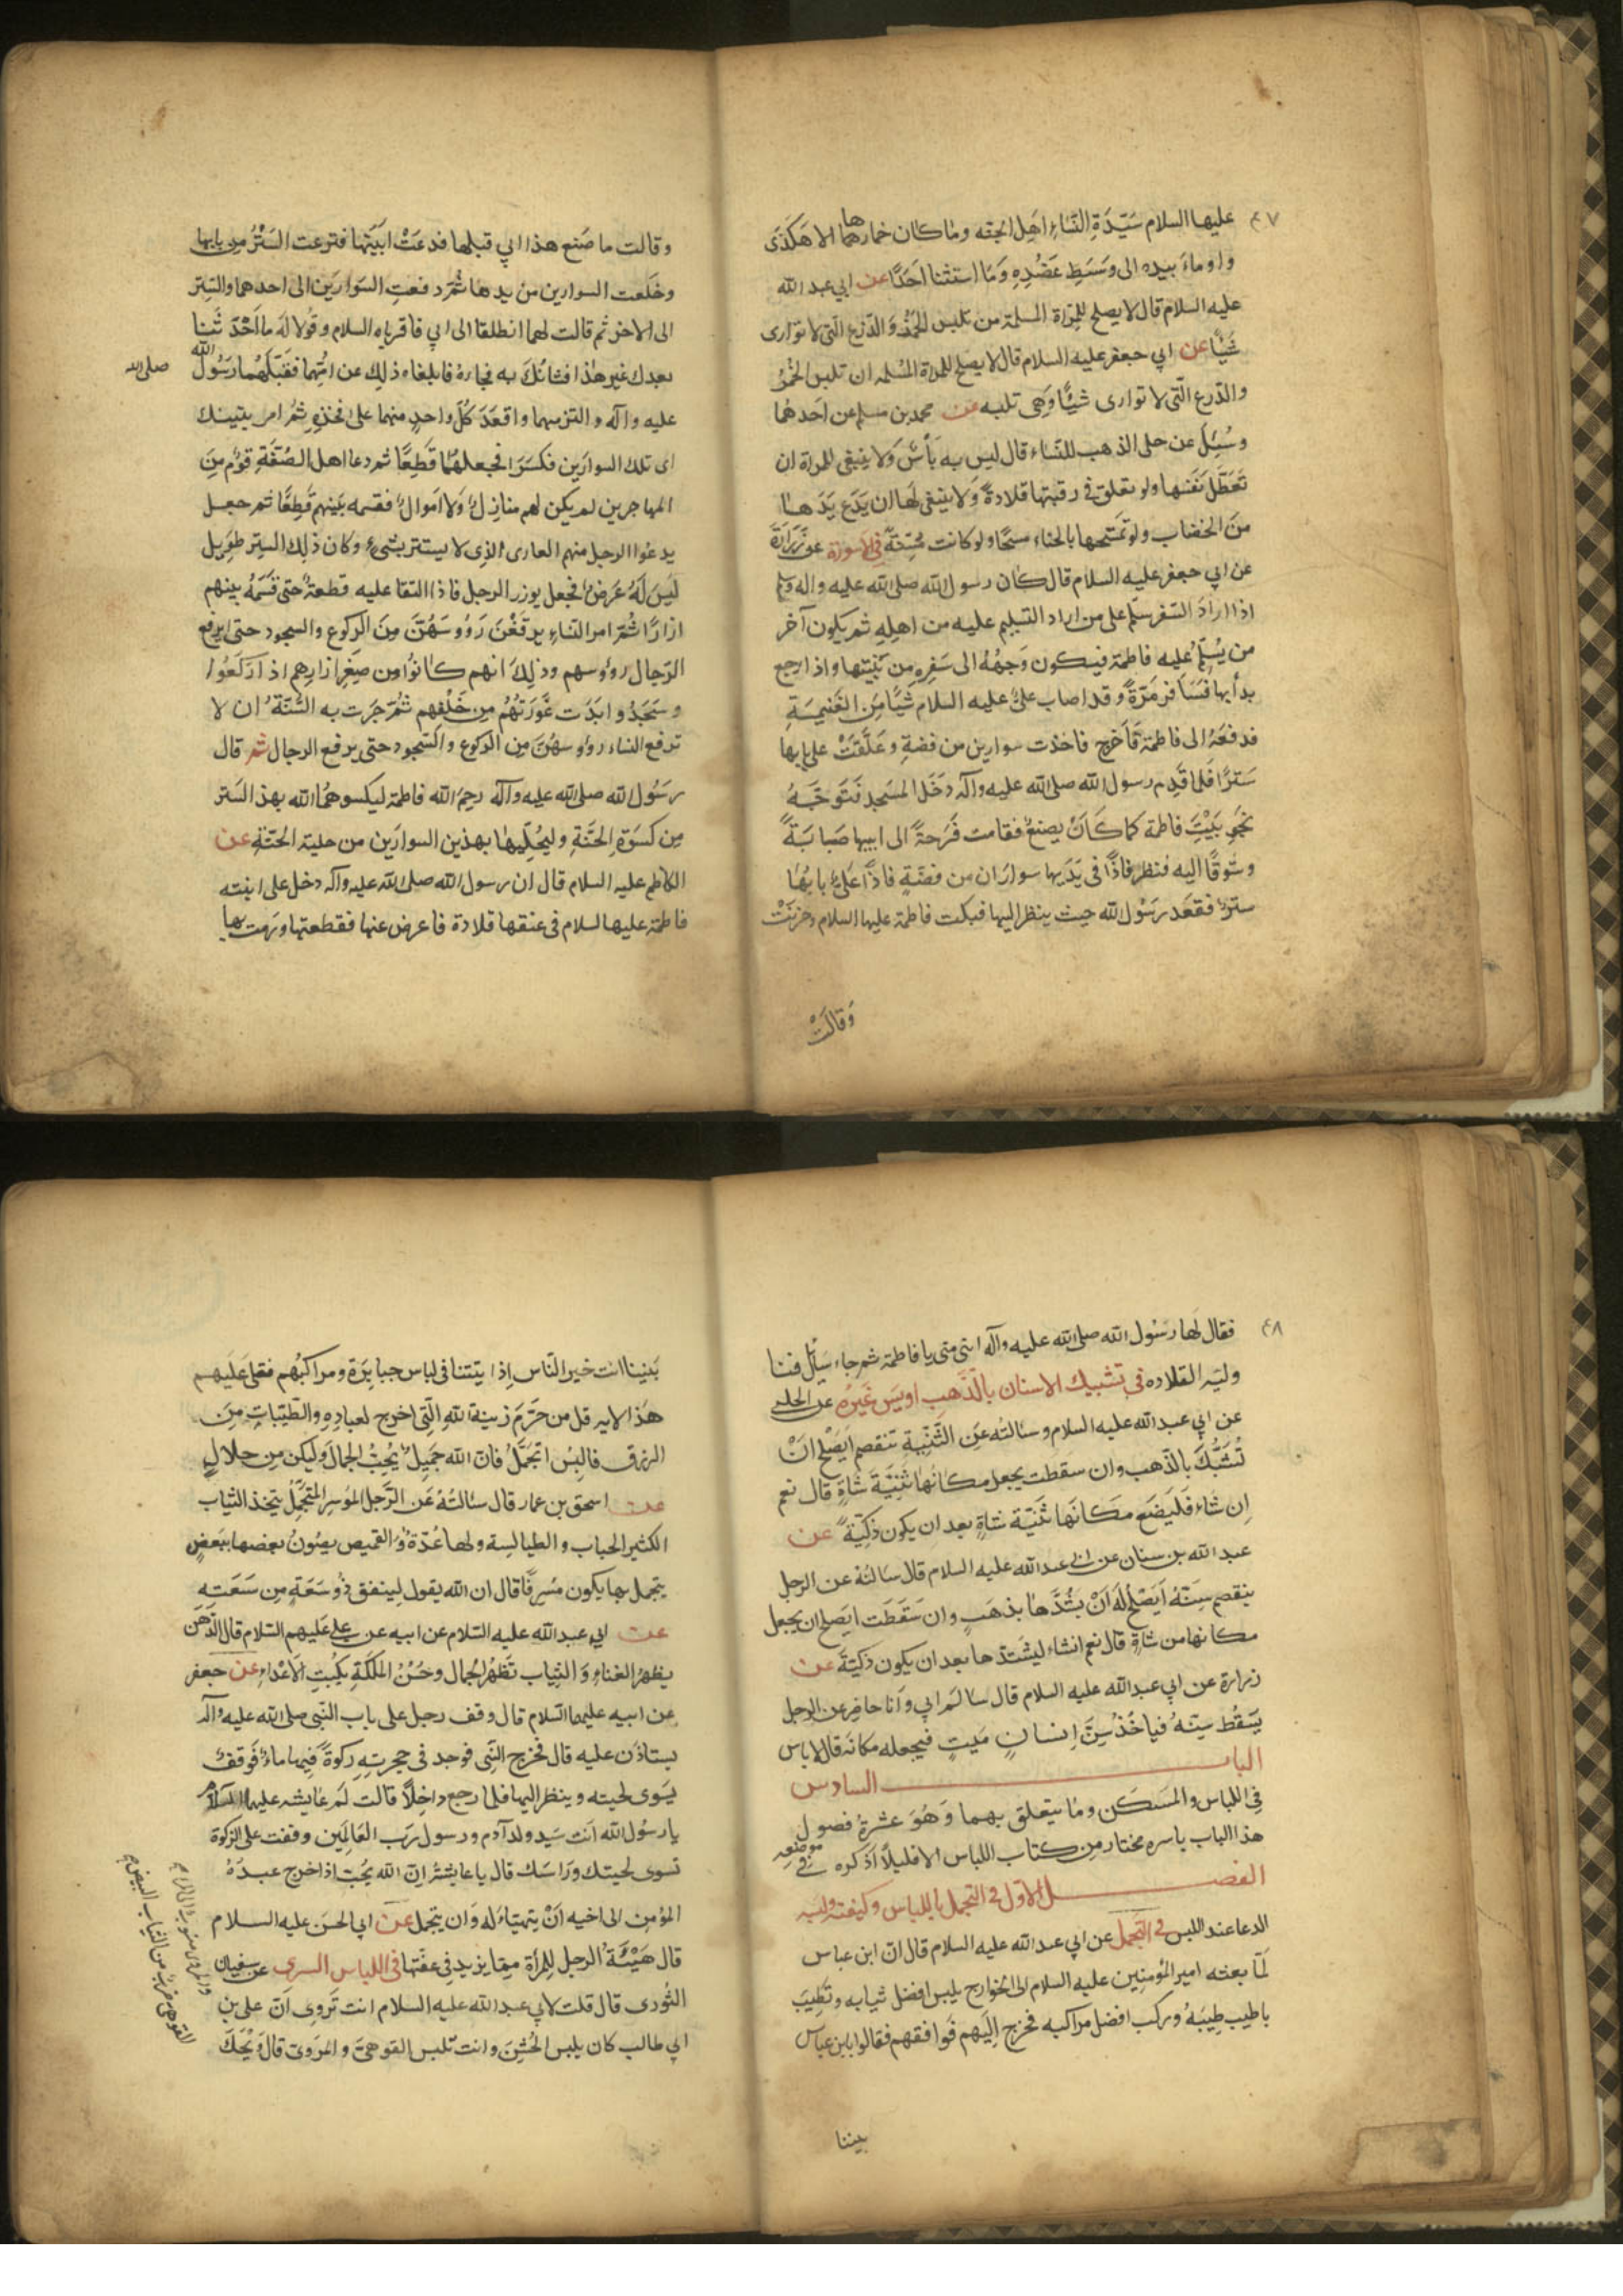 ٤٧
عليها السلام سَيِّدَةِ النّساءِ اَهِل الجنّه وما كان خمارها الا هَكذَى
واوماءَ بيده الى وَسَطِ عَضُدِهِ وَمَا استثنا اَحَدًا عن ابي عبد الله
عليه السلام قال لا يصلح للمرَاة المسلمة من تلبس الخُمُرَ وَالدّرع الّتى لا توارى
شَيْئًا عن ابي جعفر عليه السلام قال لا يصلح للمراة المُسْلمه ان تلبس الخُمُرَ
والدّرع الّتى لا توارى شيئًا وَهِى تلبه عن محمد بن مسلم عن اَحَدهُما
وسُئِلَ عن حلى الذهب للنّساء قال ليس به بَأسٌ وَلا ينبغى للمراة ان
تَعَطِّل نَفسَها ولو تعلق فى رقبتها قلادةً وَلا ينبغى لهَا ان يَدَع يَدَها
مِنَ الخضاب ولو تمسَحها بالحنّاء مسحًا ولو كانت مُسِنّةً فى الاسورة عن زُرَارَةَ
عن ابي جعفر عليه السلام قال كان رسول الله صلى الله عليه واله وسلم
اذا ارادَ السّفر سلّم على من اراد التسليم عليه من اهلِهِ ثم يكون آخر
من يُسَلِّم عليه فاطمة فيكون وَجهُهُ الى سَفرِهِ من بَيْتها واذا رجع
بدأ بها فسَافر مَرّةً وقد اصاب علىٌ عليه السلام شَيًا مِنَ الغَنيمَةِ
فدفعَهُ الى فاطمة فَاَخرج فاخذت سوارين من فضةٍ وعَلّقتْ على بابها
سَترًا فَلمّا قَدِم رسول الله صلى الله عليه وآله دَخَل المسَجد فَتَوجّهَ
نحَو بَيْتَ فاطمة كما كَانَ يصنعُ فقامت فَرَحةً الى ابيها صَبابَةً
وسَوقًا اليه فنظر فاذًا فى يَدَيها سوارَان من فضّةٍ فاذًا عَلَى بابُها
سترٌ فقعَد رَسُول الله حيث ينظر اليها فبكت فاطمة عليها السلام وحزنَتْ
وَقالَتْ
وقالت ما صَنع هذا ابي قبلها فدعَتْ ابنَيْها فنزعت السَتْرُ مِن بابها
وخَلعت السوارين من يدها ثُمّ دفعتِ السّوارَين الى احدهما والسِّتر
الى الاخر ثم قالت لهما انطلقا الى ابي فاقرياه السلام وقُولا لَه ما اَحْدَثْنا
بعدك غير هٰذا فشانكَ به فجاءهُ فابلغاه ذلِك عن اُمّهِما فقَبّلهُما رَسُول الله صلى الله
عليه وآله والتزمهما واقعَدَ كلَّ واحدٍ منهما على فخذهِ ثمُ امر بتينك
اى تلك السوارَين فكسَرَا فجعلهُمَا قَطِعًا ثم دعا اهل الصّفّةِ قوم مِنَ
المهاجرين لم يكن لهم منازلُ وَلا اموالٌ فقسمه بَينهم قطِعًا ثم جعل
يدعُوا الرجل منهم العارى الّذِى لا يستتر بشىءٍ وكان ذلِكَ السِتر طويل
ليَسَ لَهُ عَرضٌ فجعل يوزر الرجل فاذا التقا عليه قطعةً حتى قسَّمَهُ بينهم
ازارًا ثُمّ امر النساءِ يرفَعْنَ رَؤوسَهُنَّ مِنَ الركوع والسجود حتى يرفع
الرّجال رؤوسهم وذلِكَ انهم كانوُا مِن صِغَرِ ازارِهم اذ ارَكَعُوا
وسَجَدُوا بَدَت عَوْرَتهُمْ مِن خَلْفهم ثُمَّ جَرَت به السُّنّةُ ان لا
ترفع النساء رؤوسهُنَّ مِنَ الركوع والسُّجود حتى يرفع الرجال ثم قال
رسُول الله صلى الله عليه وآله رحِمَ الله فاطمة ليكسوهُا الله بهذ السَتر
مِن كسوَةِ الجَنّةِ وليُحَلِّيها بهذين السوارَين من حلية الجَنّةِ عن
الكاظم عليه السلام قال ان رسول الله صلى الله عليه وآله دخل على ابنته
فاطمة عليها السلام فى عنقها قلادة فاعرض عنها فقطعتها ورمت بها
٤٨
فقال لها رسُول الله صلى الله عليه وآله انتى منى يا فاطمة ثم جاء سَائل فنا
ولته القلاده فى تشبيك الاسنان بالذّهب اويَس غَيْرُهِ عن الحلبى
عن ابي عبد الله عليه السلام وسئالته عَن الثّنيّة تنقصم اَيَصلح اَنْ
تُشَبَّكَ بالذّهب وان سقطت يجعل مكانُها ثَنيّةَ شاةٍ قال نعم
اِن شاء فَليَضَع مَكانَها ثَنيّة شاةٍ بعد ان يكون ذكيّةً عن
عبد الله بن سنان عن ابى عبد الله عليه السلام قال سالتهُ عن الرجل
ينقصم سِنّهُ اَيَصْلُحُ لَهُ اَنْ يشُدّها بذهَبٍ وان سَقَطَت ايصلح ان يجعل
مكانها من شاةٍ قال نعم انشاء ليشَدّها بعد ان يكون ذكيّةً عن
زرارة عن ابي عبد الله عليه السلام قال سالم ابي وَانا حاضِر عن الرجل
يَسَقُط سِنّهُ فيَاخذ سِنَّ اِنسانٍ مَيتٍ فيجعله مكانه قال لا باس
الباب السادس
فِى اللّباس والمَسَكن وما يتعلق بهما وَهُوَ عشرةُ فصول
هذا الباب باسره مختار من كتاب اللباس الا قليلاً اذكره فى موضعه
الفصل الاول فى التجمل باللباس وكيفيّته ولبسه
الدعا عند اللبس فى التّجمل عن ابي عبد الله عليه السلام قال انّ ابن عباس
لَمّا بعثه امير المؤمنِين عليه السلام الى الخوارج يلبس افضل ثيابه وتطيبَ
باطيب طِيبَهُ وركب افضل مراكبه فخرج اِلَيهم فَوافقهم فقالوا يابن عباس
بيننا
بَيننا انت خير النّاس اِذ ايَتتنا فى لباس جبابِرَة ومراكبُهم فقلى عَليهم
هذا الايه قل من حَرَّمَ زينة اللهِ الّتِى اخرج لعبادِهِ والطّيّباتِ مِنَ
الرزق فالبِسُ اتَجمَّلُ فانّ الله جَمِيلٌ يُحِبُّ الجَمالَ وَليكن مِن حلالٍ
عن اسحق بن عمار قال سئالتُهُ عَن الرّجل الموُسِر المُتجمِّل يتخذ الثياب
الكثير الجباب والطيالِسة ولهَا عُدّة وَ القميص يصُونُ بعضها ببعَضٍ
يتجمل بها يكون مُسِرفًا قال ان الله يقول لينفق ذُو سَعَةٍ مِن سَعَتِهِ
عن ابي عبد الله عليه السّلام عن ابيه عن علي عَليهم السّلام قال الدّهن
يظهرُ الغناءِ وَ الثِياب تُظهرُ الجمال وحسُنُ المَلكَةِ يَكبُتِ الاَعْداء عن جعفر
عن ابيه عليهما السّلام قال وقف رجل على باب النّبى صلى الله عليه وآله
يستاذن عليه قال فخرج النّبى فوجد فى حجرتِهِ ركوةً فِيها ماءُ فَوقف
يسَوى لحيته وينظر اليها فلما رجع داخِلاً قالت لَه عايشه عليها السلام
يا رسُول الله اَنت سَيد ولد آدم ورسول رَب العَالِمين وقفت على الرّكوة
تسوى لحيتك ورَاسَك قال يا عايشةُ اِنّ الله يُحِبّ اذا خرج عبدُهُ
المؤمن الى اخيه اَنْ يتهيّاءَ لَه وَان يتجمل عن ابي الحسَن عليه السلام
قال هَيْئَةُ الرجل لِلمراَةِ ممّا يزيد فِى عفّتها فى اللباس السرى عن سفيان
الثّورى قال قلت لابي عبد الله عليه السلام انت تَروى اَنّ على بن
ابي طالب كان يلبس الخُشِنَ وانت تلبس القوهىّ و المروىّ قال وَيْحَكَ
القوهى ضرب من الثياب البيض